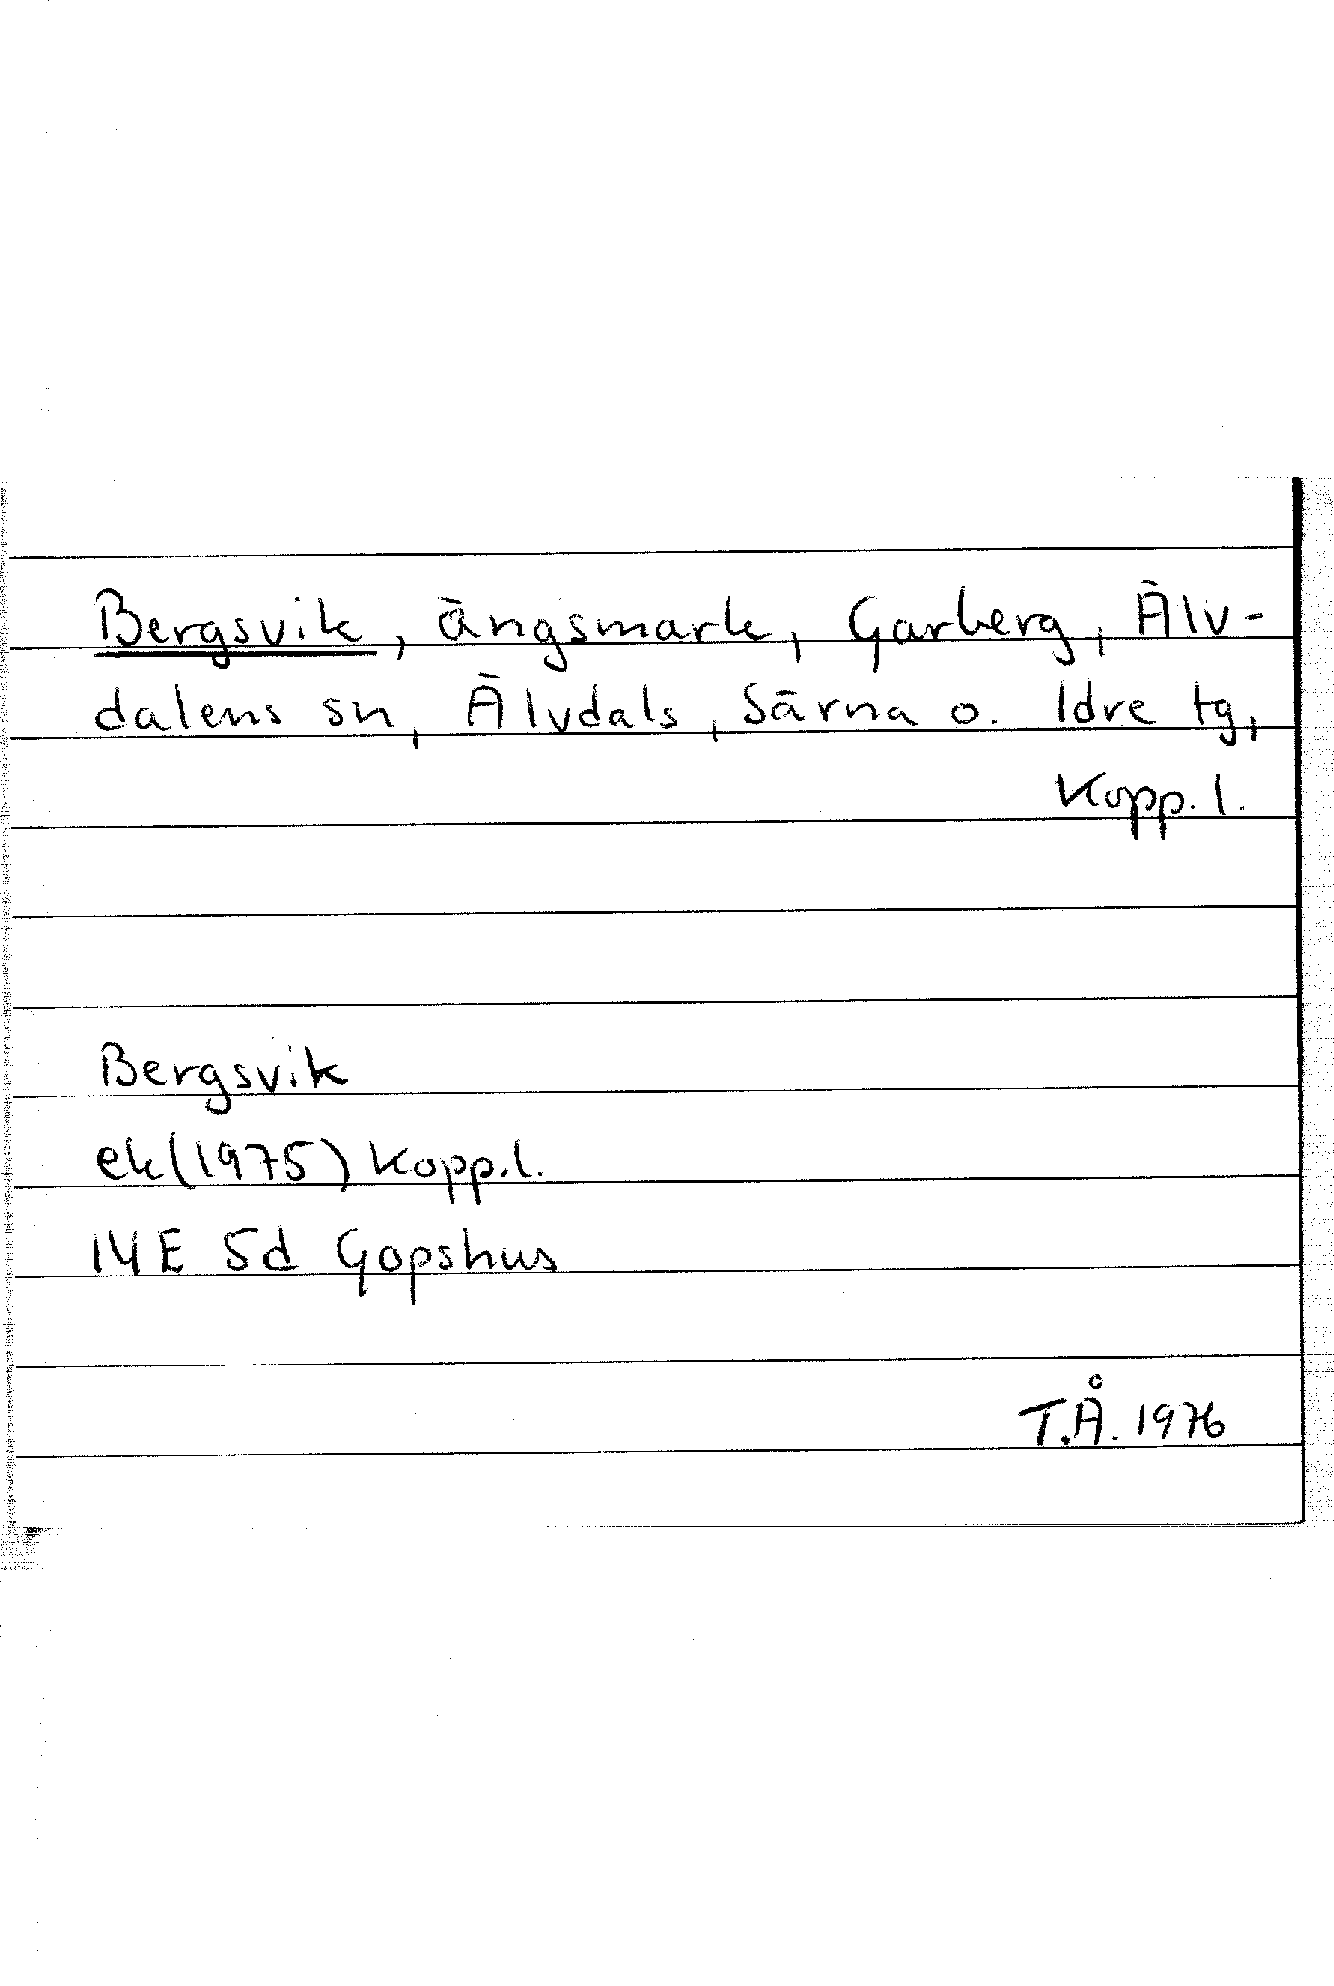 Bergsvik, ängsmark, Garberg, Älv-
dalens sn, Älvdals, Särna o. Idre tg,
Kopp. l.
Bergsvik
ek (1975) Kopp. l.
14E 5d Gopshus
T.Å. 1976